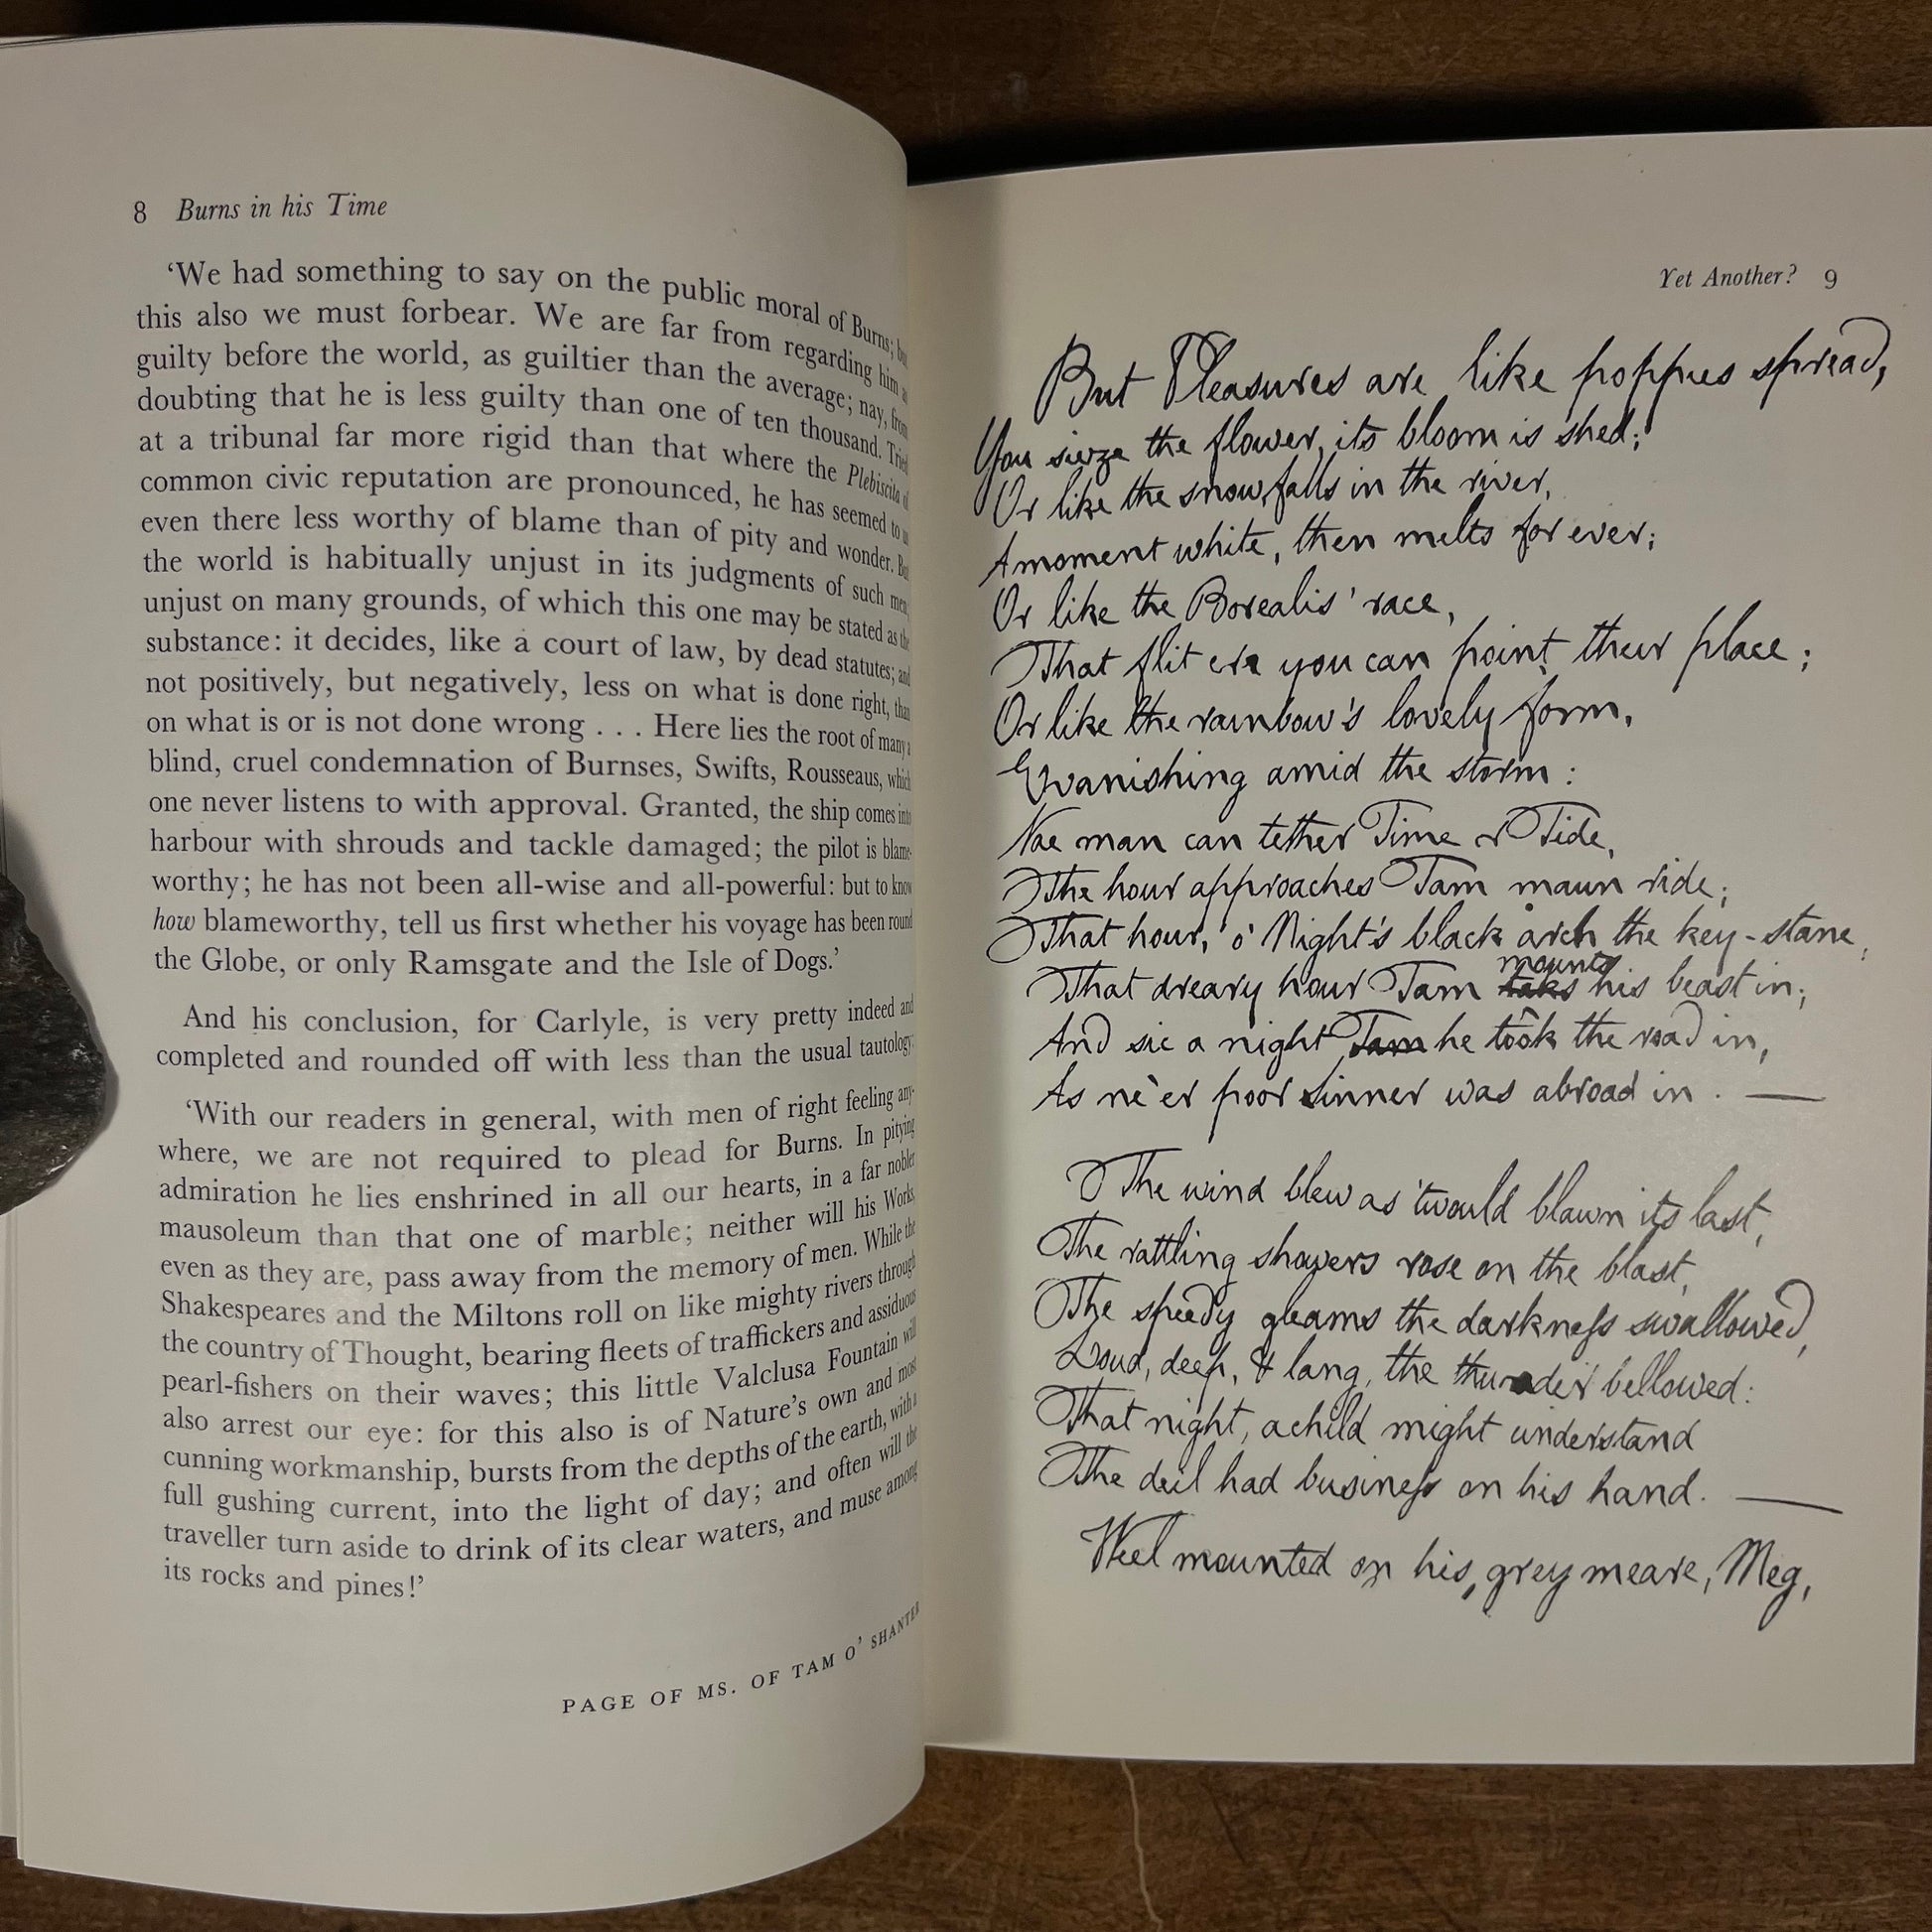 8 Burns in his Time
‘We had something to say on the public moral of Burns; but
this also we must forbear. We are far from regarding him as
guilty before the world, as guiltier than the average; nay, from
doubting that he is less guilty than one of ten thousand. Tried
at a tribunal far more rigid than that where the Plebiscita of
common civic reputation are pronounced, he has seemed to us
even there less worthy of blame than of pity and wonder. But
the world is habitually unjust in its judgments of such men;
unjust on many grounds, of which this one may be stated as the
substance: it decides, like a court of law, by dead statutes; and
not positively, but negatively, less on what is done right, than
on what is or is not done wrong . . . Here lies the root of many a
blind, cruel condemnation of Burnses, Swifts, Rousseaus, which
one never listens to with approval. Granted, the ship comes into
harbour with shrouds and tackle damaged; the pilot is blame-
worthy; he has not been all-wise and all-powerful: but to know
how blameworthy, tell us first whether his voyage has been round
the Globe, or only Ramsgate and the Isle of Dogs.’
And his conclusion, for Carlyle, is very pretty indeed and
completed and rounded off with less than the usual tautology:
‘With our readers in general, with men of right feeling any-
where, we are not required to plead for Burns. In pitying
admiration he lies enshrined in all our hearts, in a far nobler
mausoleum than that one of marble; neither will his Works,
even as they are, pass away from the memory of men. While the
Shakespeares and the Miltons roll on like mighty rivers through
the country of Thought, bearing fleets of traffickers and assiduous
pearl-fishers on their waves; this little Valclusa Fountain will
also arrest our eye: for this also is of Nature’s own and most
cunning workmanship, bursts from the depths of the earth, with a
full gushing current, into the light of day; and often will the
traveller turn aside to drink of its clear waters, and muse among
its rocks and pines!’
PAGE OF MS. OF TAM O’ SHANTER
Yet Another? 9
But Pleasures are like poppies spread,
You sieze the flower, its bloom is shed;
Or like the snow falls in the river,
A moment white, then melts for ever;
Or like the Borealis' race,
That flit ere you can point their place;
Or like the rainbow's lovely form,
Evanishing amid the storm:
Nae man can tether Time or Tide,
The hour approaches Tam maun ride;
That hour, o' Night's black arch the key-stane,
That dreary hour Tam taks mounts his beast in;
And sic a night Tam he took the road in,
As ne'er poor sinner was abroad in. —
The wind blew as 'twould blawn its last,
The rattling showers rose on the blast,
The speedy gleams the darkness swallowed,
Loud, deep, & lang, the thunder bellowed:
That night, a child might understand
The deil had business on his hand. —
Weel mounted on his grey meare, Meg,